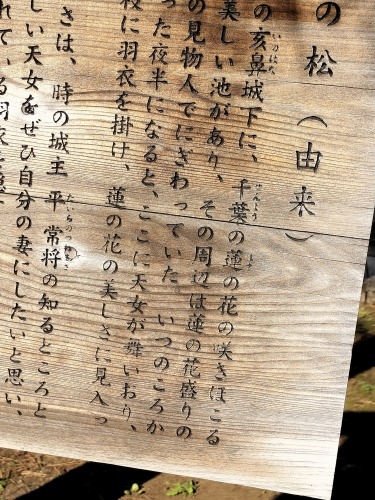 の松(由来)
の亥鼻城下に、千葉の蓮の花の咲きほこる
美しい池があり、その周辺は蓮の花盛りの
の見物人でにぎわっていた。いつのころか
った夜半になると、ここに天女が舞いおり、
枝に羽衣を掛け、蓮の花の美しさに見入っ
さは、時の城主平常将の知るところと
しい天女をぜひ自分の妻にしたいと思い、
れている羽衣を